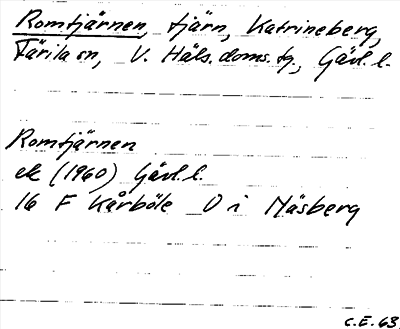 Romtjärnen, tjärn, Katrineberg,
Färila sn, V. Häls. doms. tg., Gävl. l.
Romtjärnen
ek (1960) Gävl. l.
16 F Kårböle O i Näsberg
C.E. 63